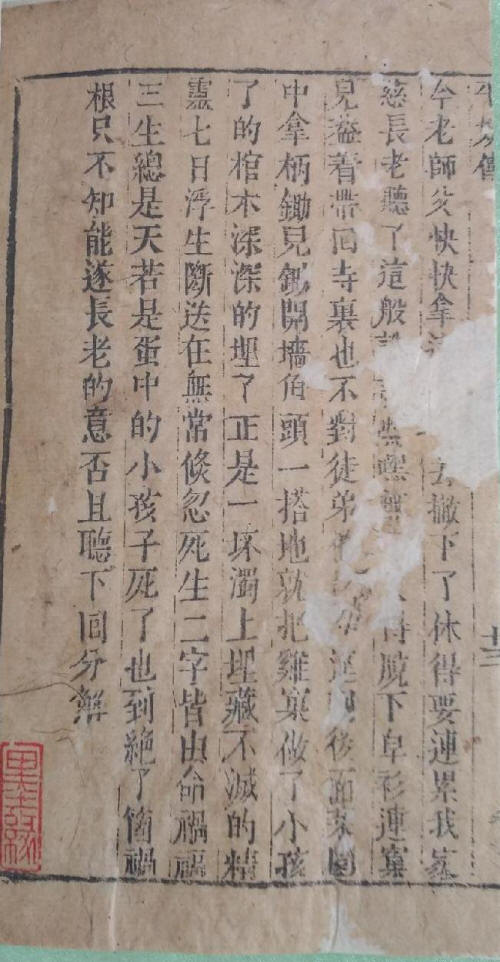 傳
老師父快快拿 去撇下了休得要連累我
慈長老聽了這般 得脫下皂衫連窠
兒盖着帶回寺裏也不對徒弟 後面菜園
中拿柄鋤兒鋤開墻角頭一搭地就把雞窠做了小孩
了的棺木深深的埋了正是一坏濁土埋藏不滅的精
靈七日浮生斷送在無常倏忽死生二字皆由命禍福
三生總是天若是蛋中的小孩子死了也到絕了箇禍
根只不知能遂長老的意否且聽下回分解